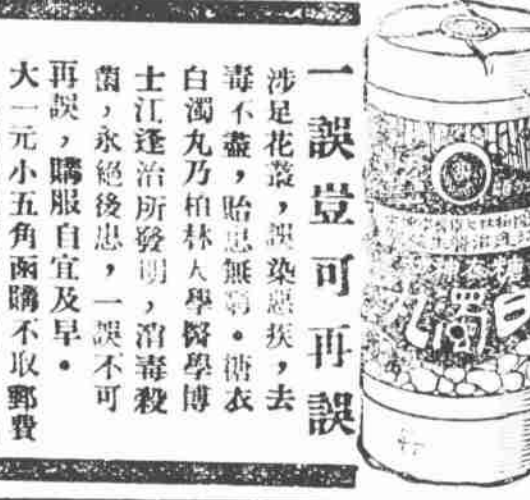 一誤豈可再誤
涉足花叢，誤染惡疾，去
毒不盡，貽患無窮。糖衣
白濁丸乃柏林大學醫學博
士江逢治所發明，消毒殺
菌，永絕後患，一誤不可
再誤，購服自宜及早。
大一元小五角函購不取郵費
白濁丸